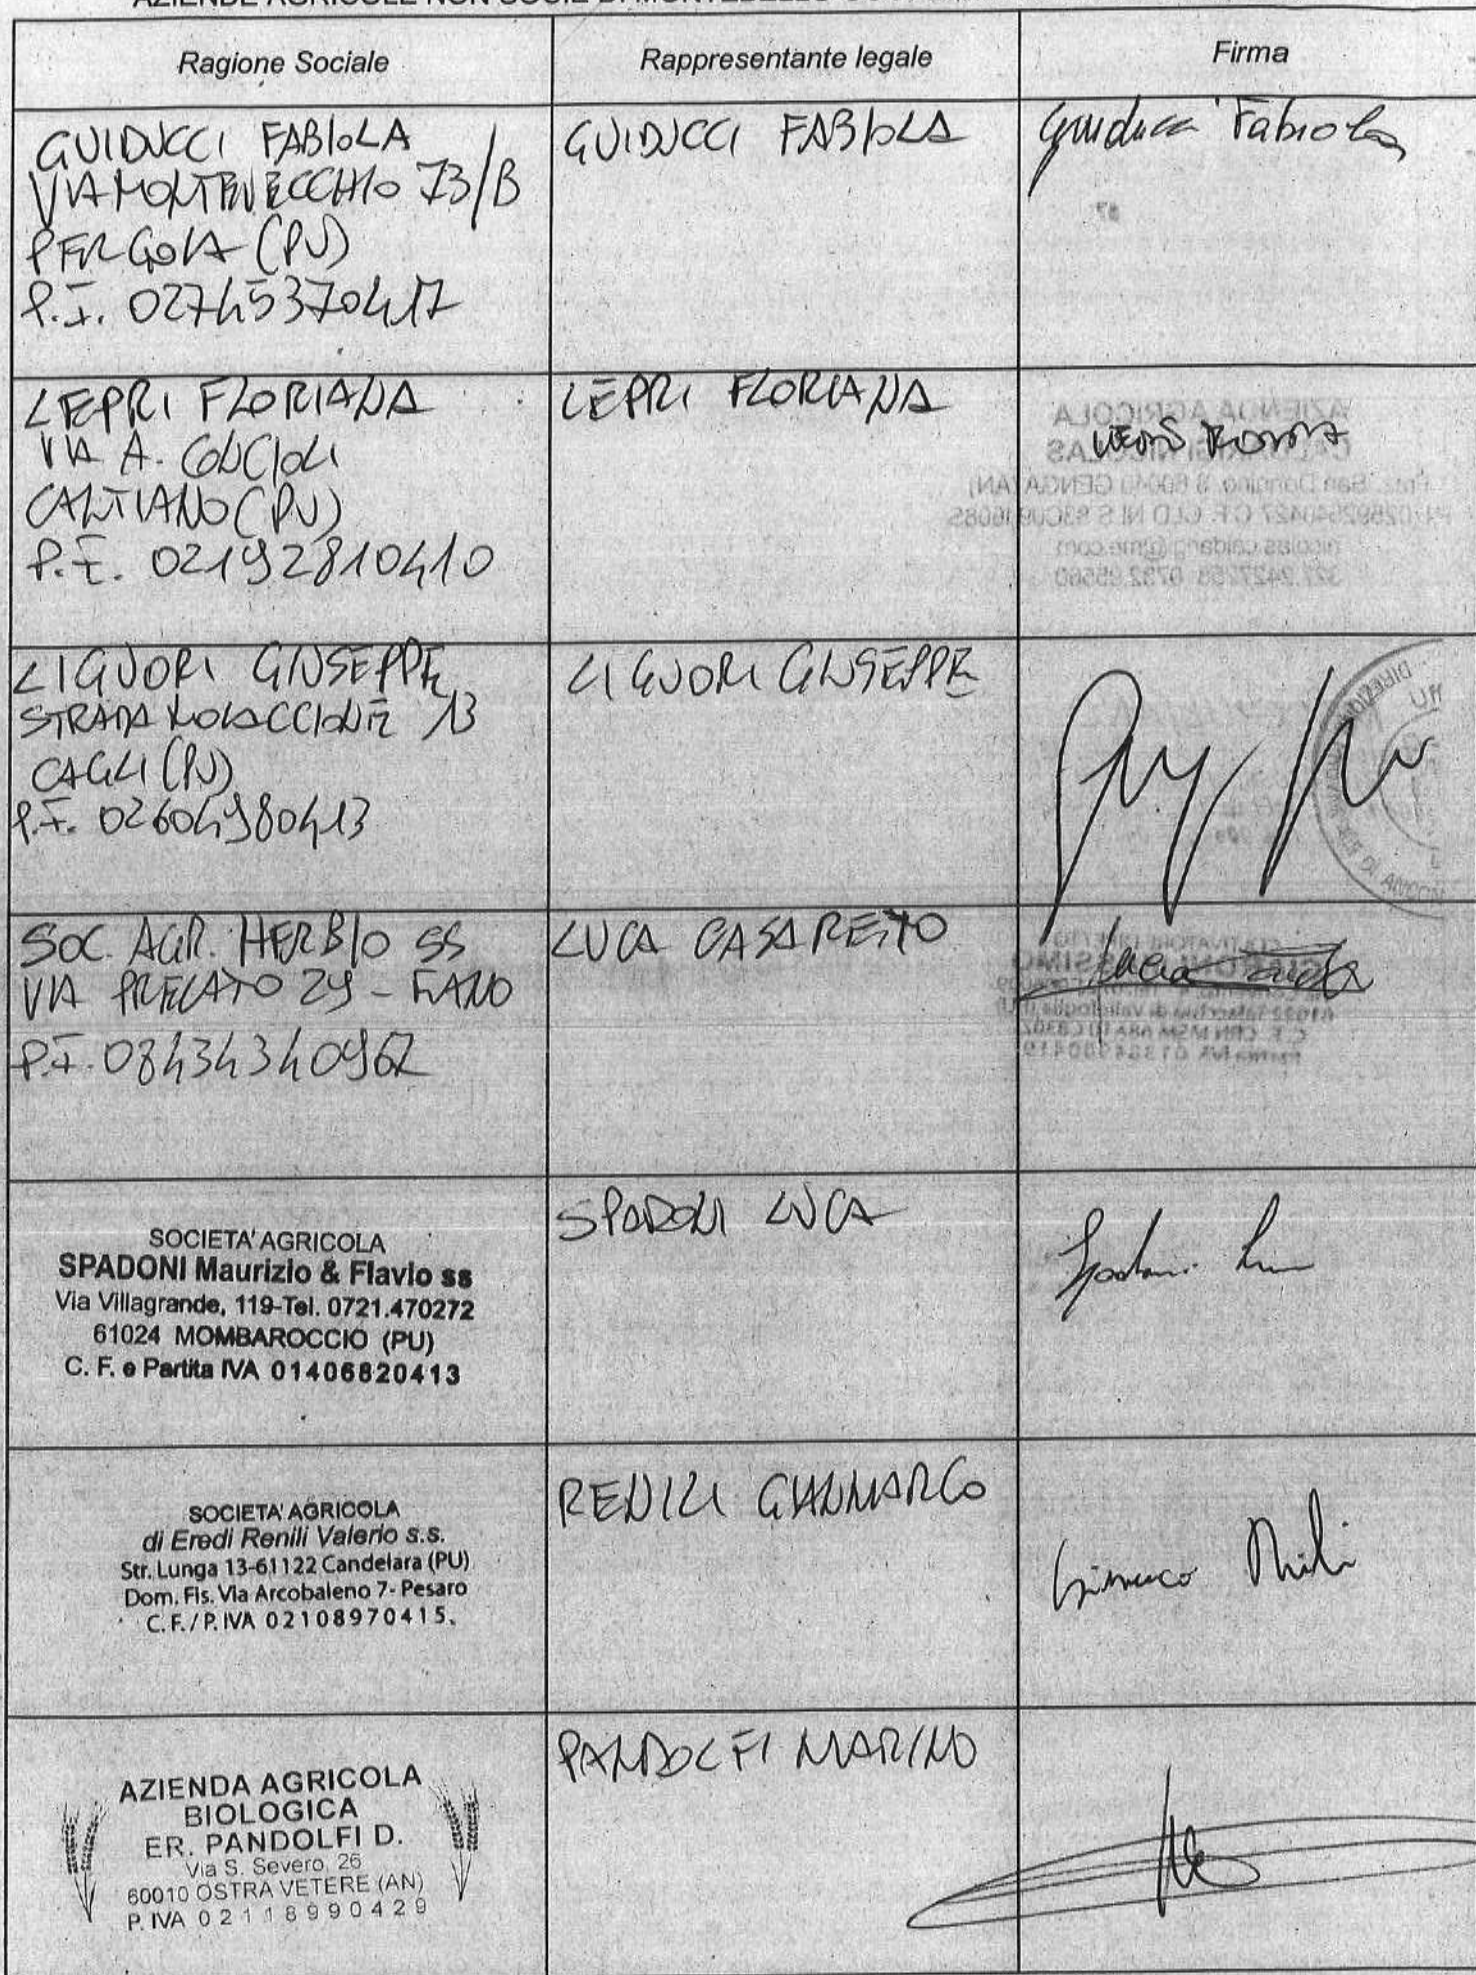 Ragione Sociale
Rappresentante legale
Firma
GUIDUCCI FABIOLA
VIA MONTEVECCHIO 73/B
PERGOLA (PU)
P.I. 02745370417
GUIDUCCI FABIOLA
Guiducci Fabiola
LEPRI FLORIANA
VIA A. CONCIOLI
CANTIANO (PU)
P.I. 02192810410
LEPRI FLORIANA
LIGUORI GIUSEPPE
STRADA 13
CAGLI (PU)
P.I. 02604980413
LIGUORI GIUSEPPE
SOC. AGR. HERBIO SS
VIA PRELATO 29 - FANO
P.I. 08434340962
LUCA CASARETO
SOCIETA' AGRICOLA
SPADONI Maurizio & Flavio ss
Via Villagrande, 119-Tel. 0721.470272
61024 MOMBAROCCIO (PU)
C. F. e Partita IVA 01406820413
SPADONI LUCA
Spadoni Luca
SOCIETA' AGRICOLA
di Eredi Renili Valerio s.s.
Str. Lunga 13-61122 Candelara (PU)
Dom. Fis. Via Arcobaleno 7- Pesaro
C. F. / P. IVA 02108970415.
RENILI GIANMARCO
AZIENDA AGRICOLA
BIOLOGICA
ER. PANDOLFI D.
Via S. Severo, 26
60010 OSTRA VETERE (AN)
P. IVA 02118990429
PANDOLFI MARINO